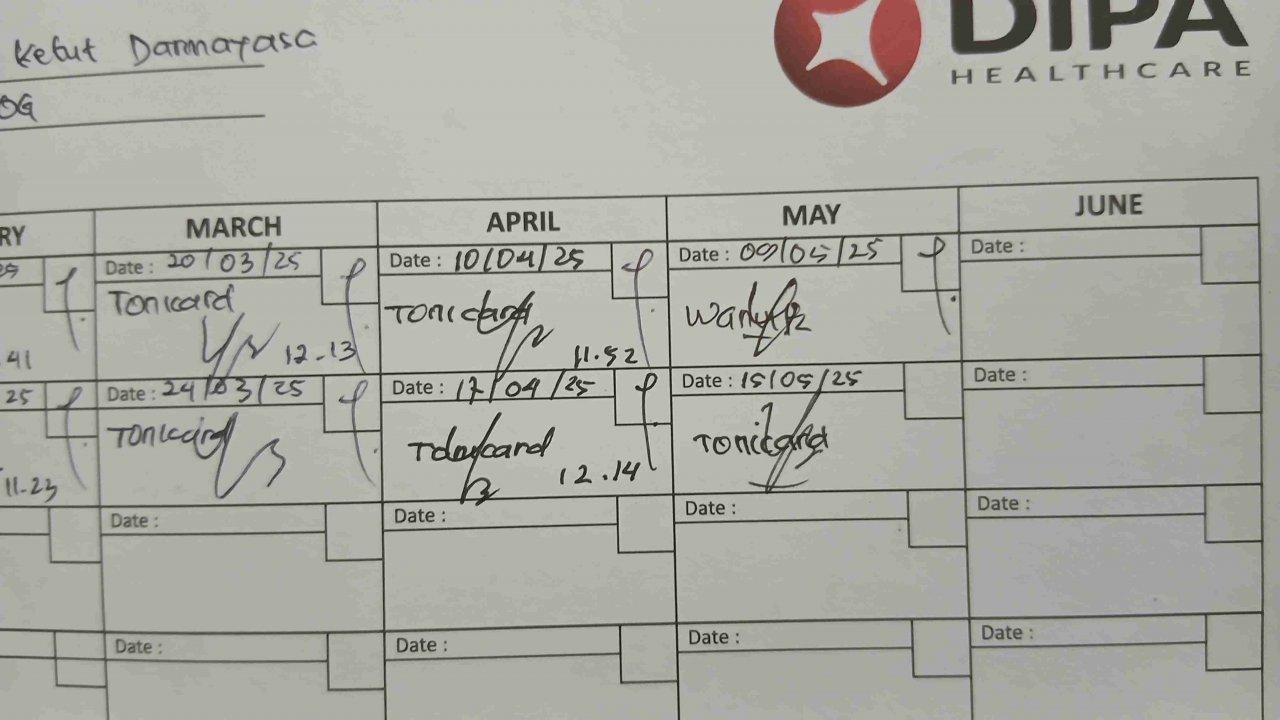 Ketut Darmayasa
OG
DIPA
HEALTHCARE
RY MARCH APRIL MAY JUNE
Date : 20/03/25 Date : 10/04/25 Date : 09/05/25 Date :
Tonicard Tonicard
41 12.13 11.52
25 Date : 24/03/25 Date : 17/04/25 Date : 15/05/25 Date :
Tonicard Tonicard
11.23 12.14
Date : Date : Date : Date :
Date : Date : Date : Date :